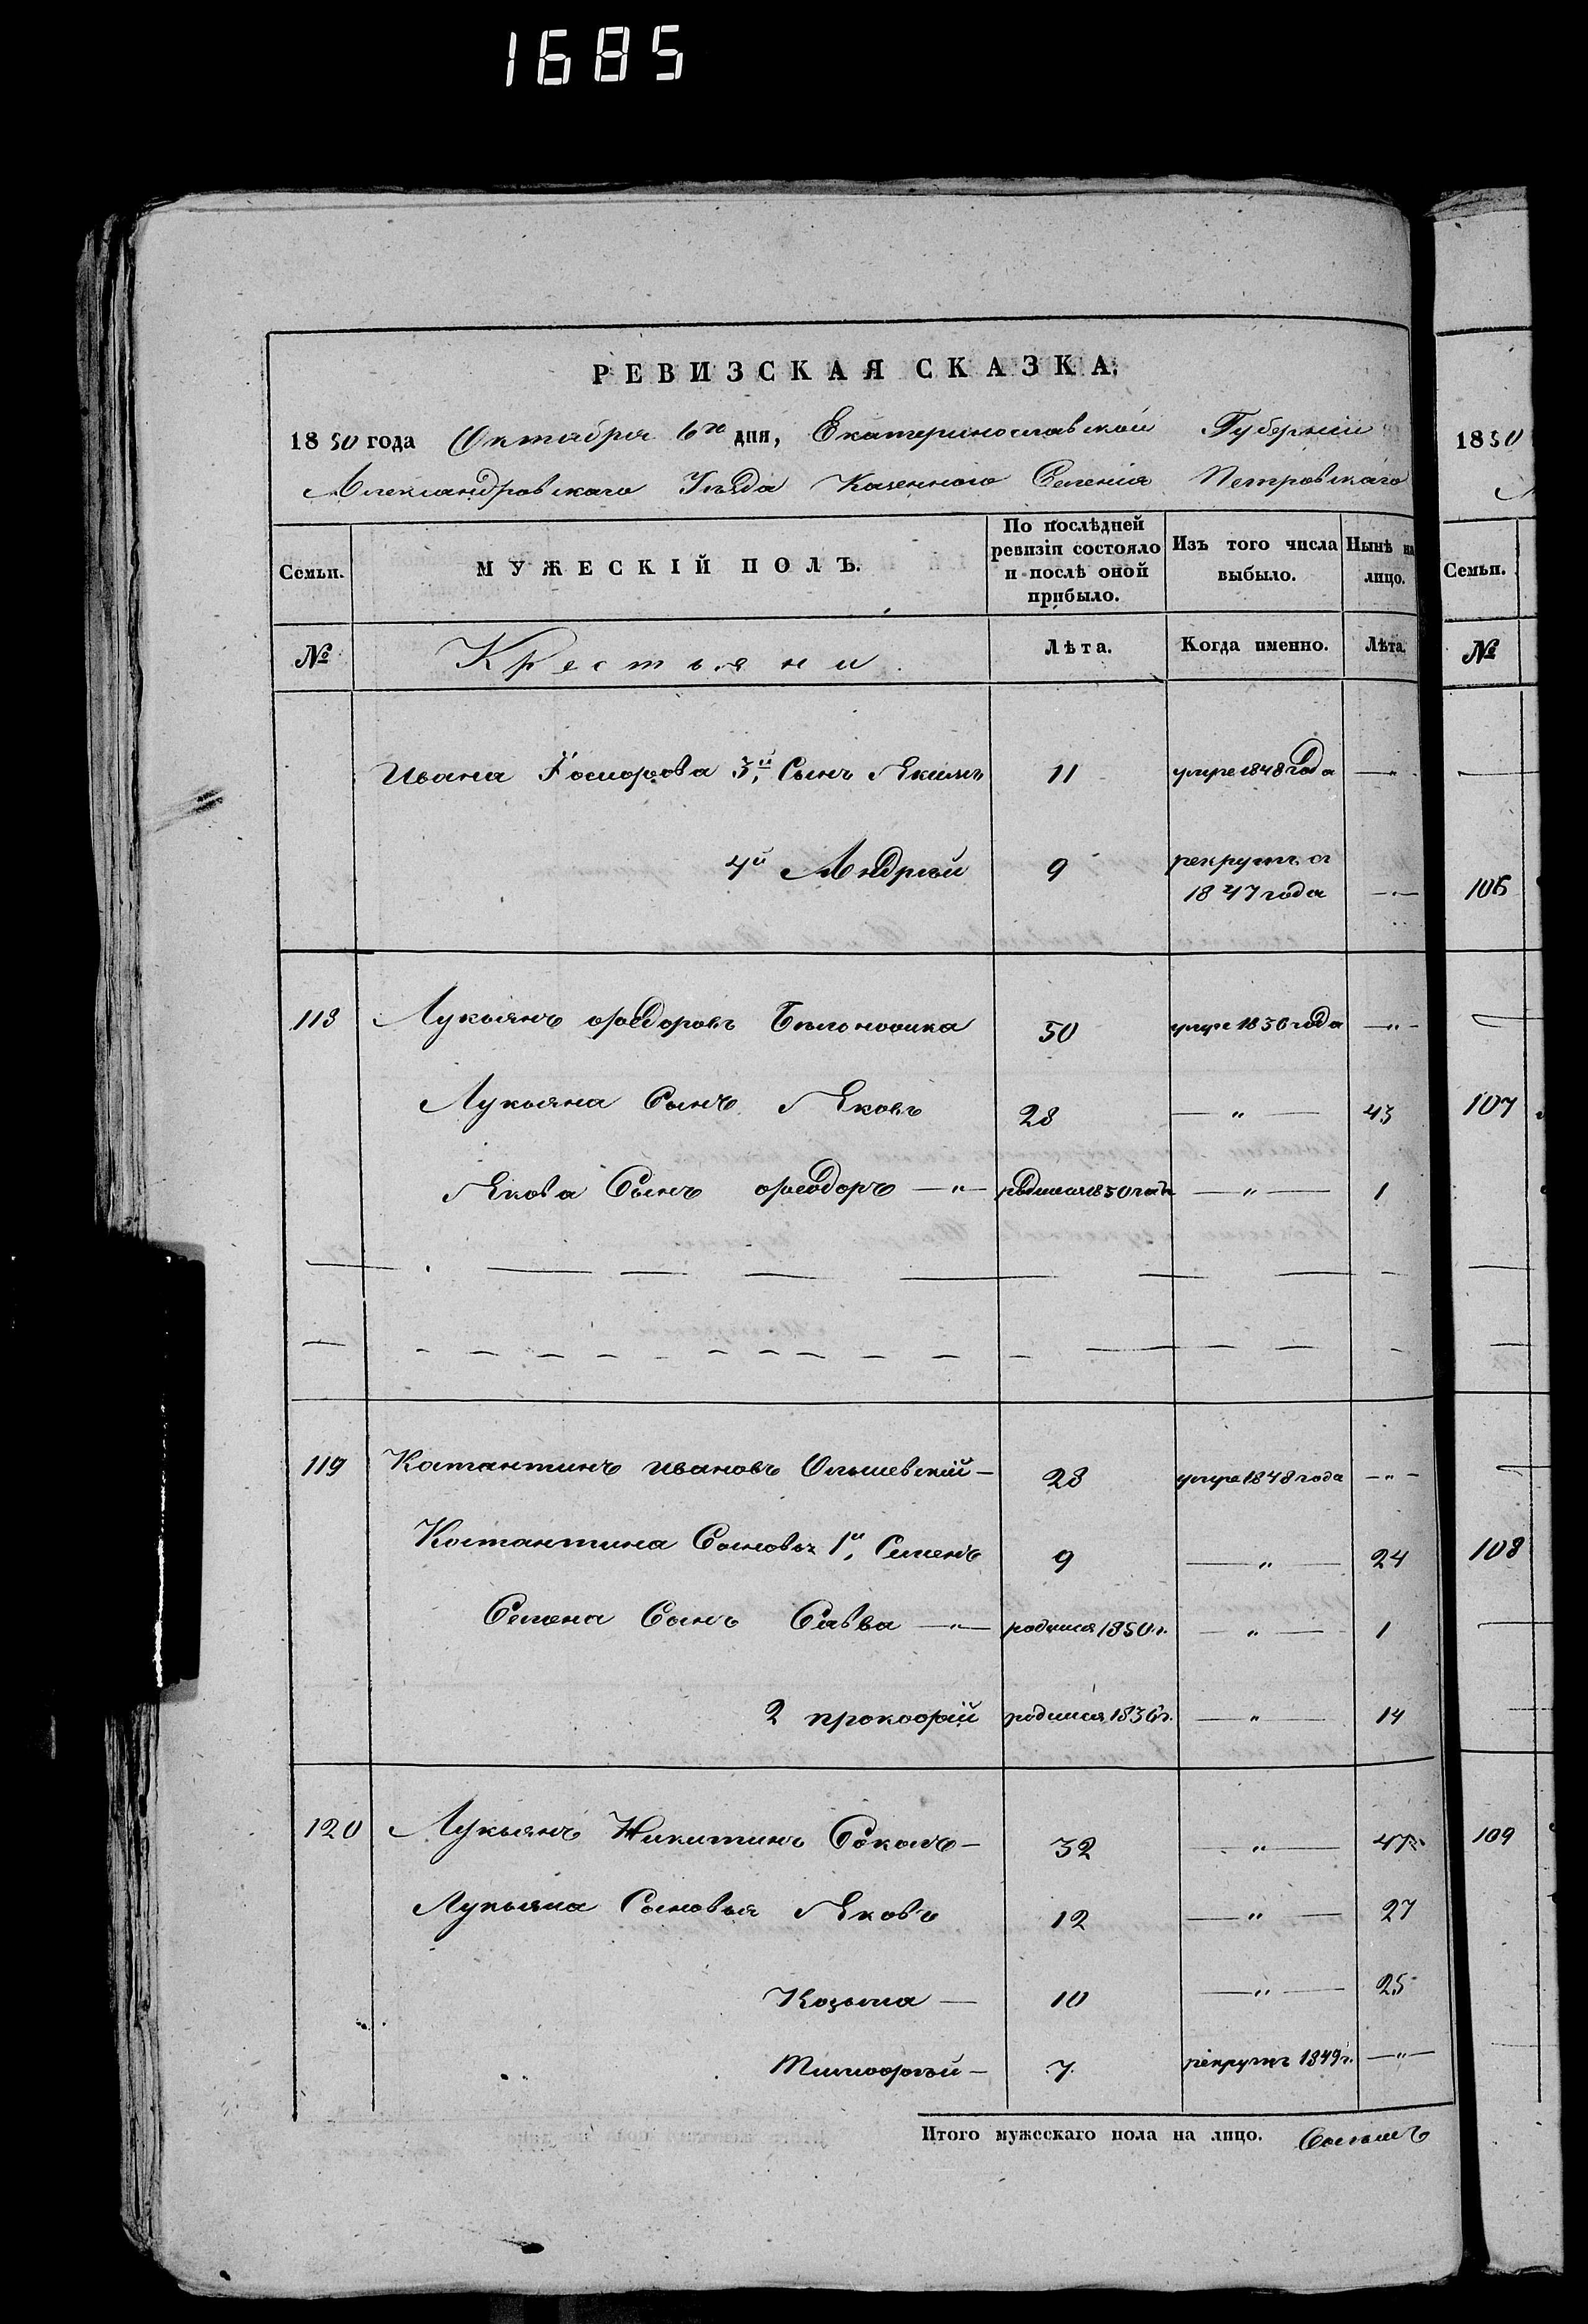 1685
РЕВИЗСКАЯ СКАЗКА,
1850 года Октября 6го дня, Екатеринославской Губернии
Александровскаго Уѣзда Казенного Селенія Петровскаго
Семьи. МУЖЕСКІЙ ПОЛЪ. По послѣдней ревизіи состояло и послѣ оной прибыло. Изъ того числа выбыло. Нынѣ на лицо.
№ Крестьяни Лѣта. Когда именно. Лѣта.
Ивана 3й Сынъ Якимъ 11 умре 1848 года — " —
4й Андрѣй 9 рекрутъ съ 1847 года — " —
118 Лукьянъ Феодоровъ 50 умре 1836 года — " —
Лукьяна Сынъ Яковъ 28 — " — 43
Якова Сынъ Феодоръ — " — родился 1850 года — " — 1
119 Костантинъ Ивановъ Ольшевскій — 28 умре 1848 года — " —
Костантина Сыновья 1й Семенъ 9 — " — 24
Семена Сынъ Савва — " — родился 1850 г. — " — 1
2 Прокофій родился 1836 г. — " — 14
120 Лукьянъ Никитинъ Соколъ — 32 — " — 47
Лукьяна Сыновья Яковъ 12 — " — 27
Козьма — 10 — " — 25
Тимофѣй — 7. рекрутъ 1849 г. — " —
Итого мужескаго пола на лицо.
1850
Семьи.
№
106
107
108
109